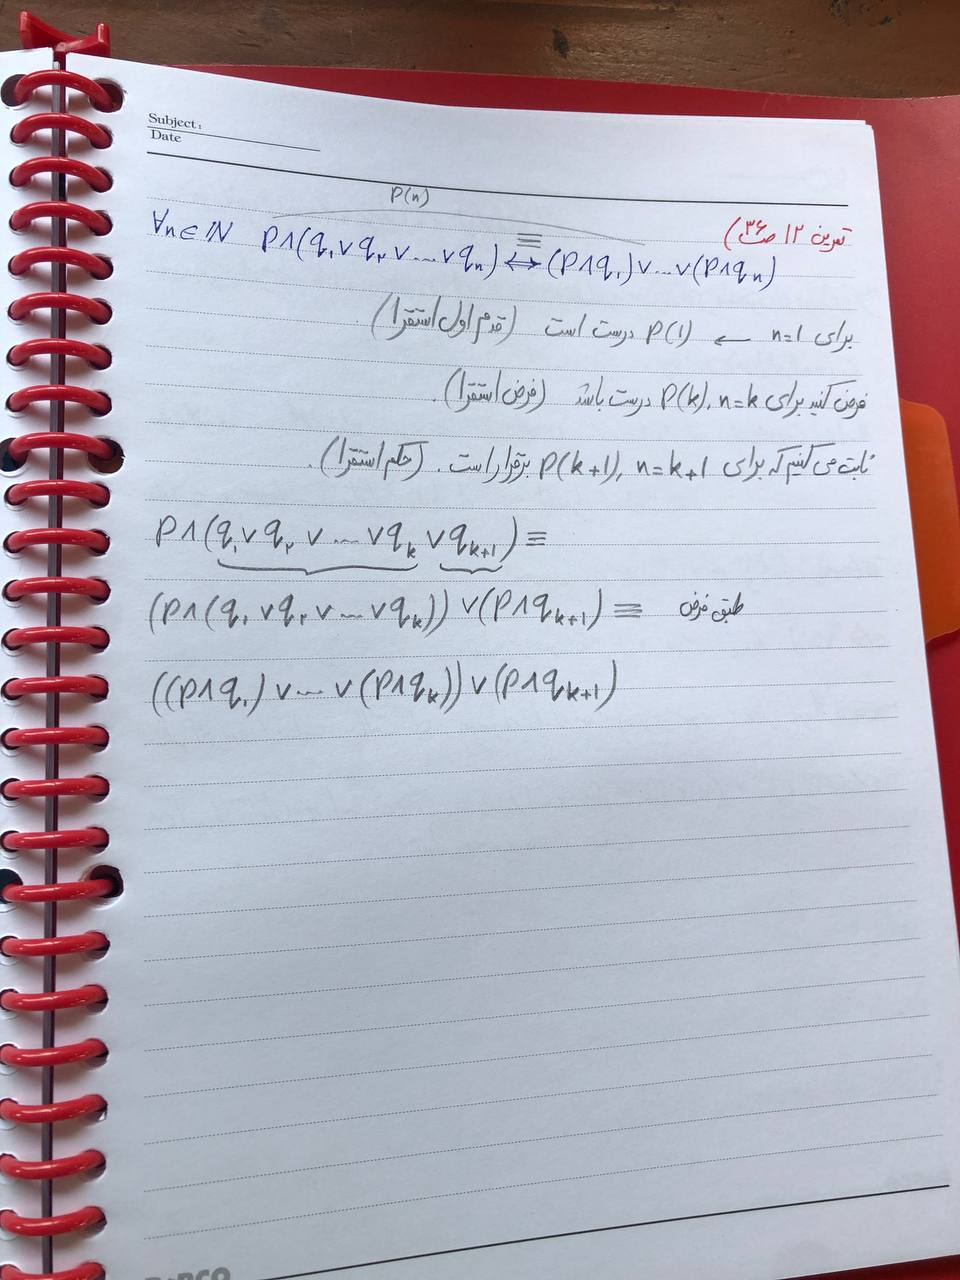 Subject:
Date
P(n)
تمرین ۱۲ ص ۳۶)
∀n∈ℕ P∧(q₁∨q₂∨...∨qₙ) ≡ ↔ (P∧q₁)∨...∨(P∧qₙ)
برای n=1 ← P(1) درست است (قدم اول استقرا)
فرض کنید برای n=k، P(k) درست باشد (فرض استقرا).
ثابت می‌کنیم که برای n=k+1، P(k+1) برقرار است. (حکم استقرا).
P∧(q₁∨q₂∨...∨qₖ∨qₖ₊₁)≡
(P∧(q₁∨q₂∨...∨qₖ))∨(P∧qₖ₊₁)≡ طبق فرض
((P∧q₁)∨...∨(P∧qₖ))∨(P∧qₖ₊₁)